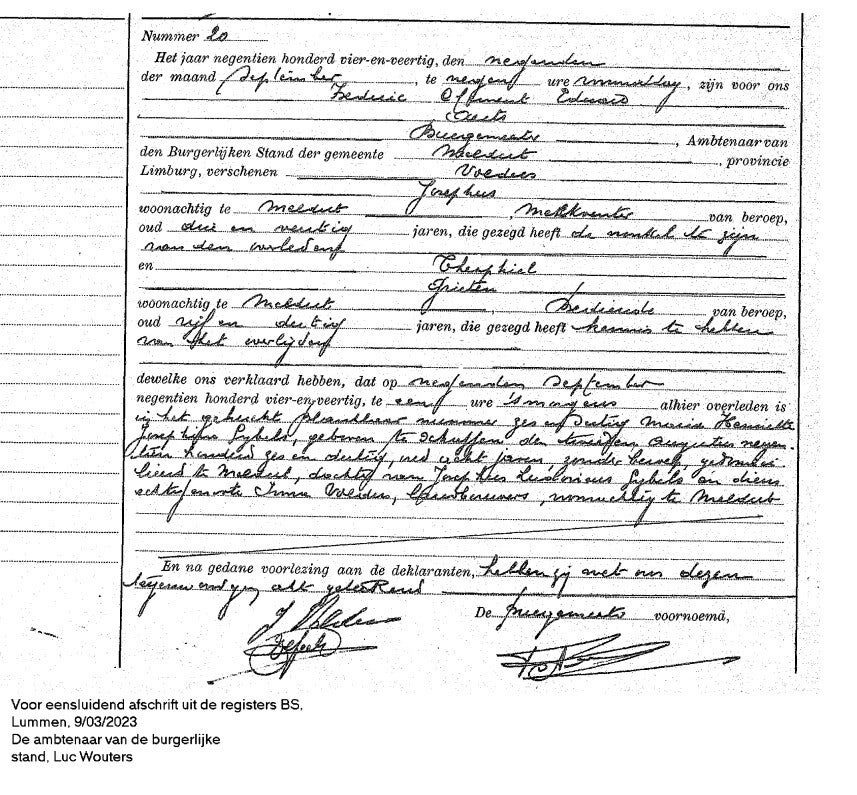 Nummer 20
Het jaar negentien honderd vier-en-veertig, den negenden
der maand September, te negen ure voormiddag, zijn voor ons
Frederic Clement Edward
Aerts
Burgemeester, Ambtenaar van
den Burgerlijken Stand der gemeente Meldert, provincie
Limburg, verschenen Volders
Josephus
woonachtig te Meldert van beroep,
oud drie en veertig jaren, die gezegd heeft de nonkel te zijn
van den overledene
en Theophiel
Grieten
woonachtig te Meldert, bediende van beroep,
oud vijf en dertig jaren, die gezegd heeft kennis te hebben
van het overlijden
dewelke ons verklaard hebben, dat op negenden September
negentien honderd vier-en-veertig, te een ure 's morgens alhier overleden is
in het gehucht nummer zes en dertig Maria Henriette
Josephina Sybels, geboren te Schaffen den Augustus negen-
tien honderd zes en dertig, oud acht jaren, zonder beroep, gedomici-
lieerd te Meldert, dochter van Josephus Sybels en diens
echtgenoote Irma Volders, landbouwers, woonachtig te Meldert
En na gedane voorlezing aan de deklaranten, hebben zij met ons dezen
tegenwoordigen akt geteekend
De burgemeester voornoemd,
J Volders
Voor eensluidend afschrift uit de registers BS,
Lummen, 9/03/2023
De ambtenaar van de burgerlijke
stand, Luc Wouters